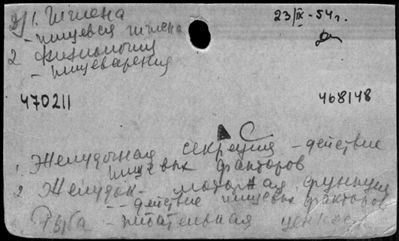 1. Гигиена
23/IX - 54 г.
- пищевая гигиена
2 Физиология
- пищеварения
470211
468148
С
1. Желудочная секреция - действие
пищевых факторов
2 Желудок - моторная функция
- действие пищевых факторов
Рыба - питательная ценность